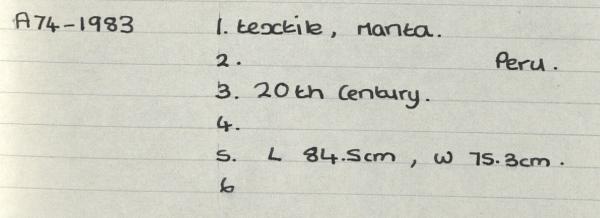 A74-1983 1. textile, Manta.
2. Peru.
3. 20th Century.
4.
5. L 84.5cm, W 75.3cm.
6